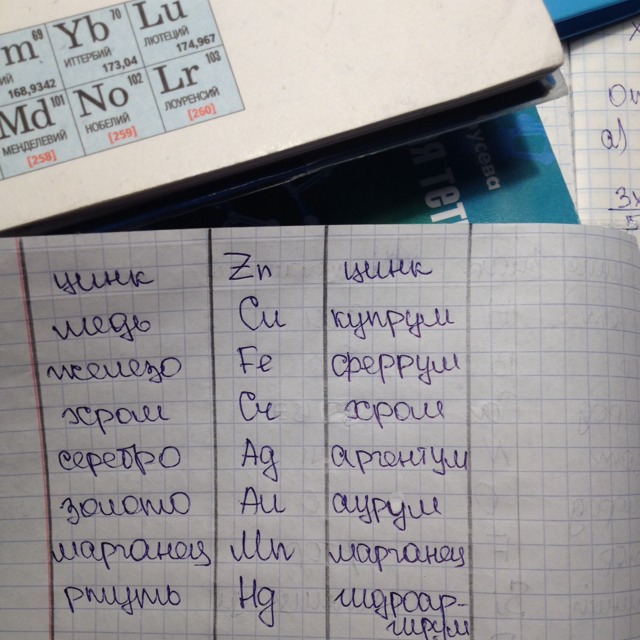 m 69 Yb 70 Lu
ИТТЕРБИЙ ЛЮТЕЦИЙ
168,9342 173,04 174,967
Md 101 No 102 Lr 103
МЕНДЕЛЕВИЙ НОБЕЛИЙ ЛОУРЕНСИЙ
[258] [259] [260]
усева
я тет
а)
цинк Zn цинк
медь Cu купрум
железо Fe феррум
хром Cr хром
серебро Ag аргентум
золото Au аурум
марганец Mn марганец
ртуть Hg гидроар-
гирум